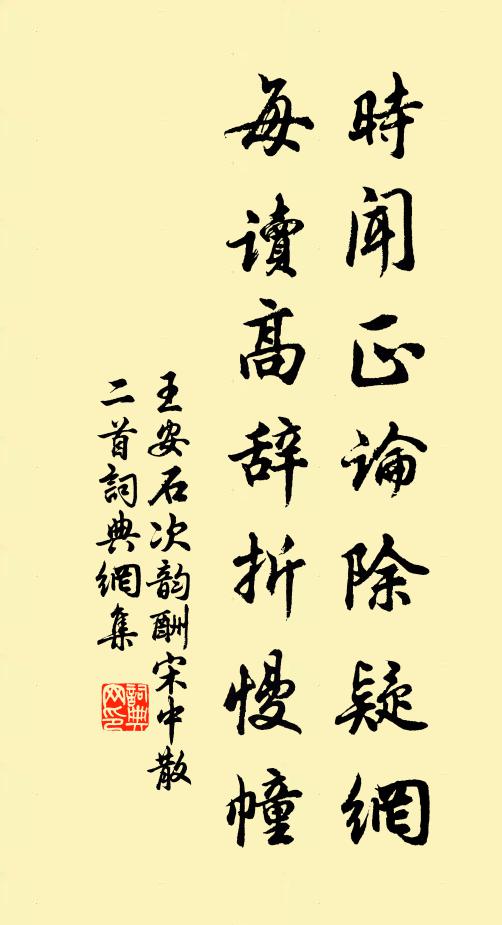 時聞正論除疑網
每讀高辞折慢幢
王安石次韵酬宋中散
二首詞典網集
詞典
网印